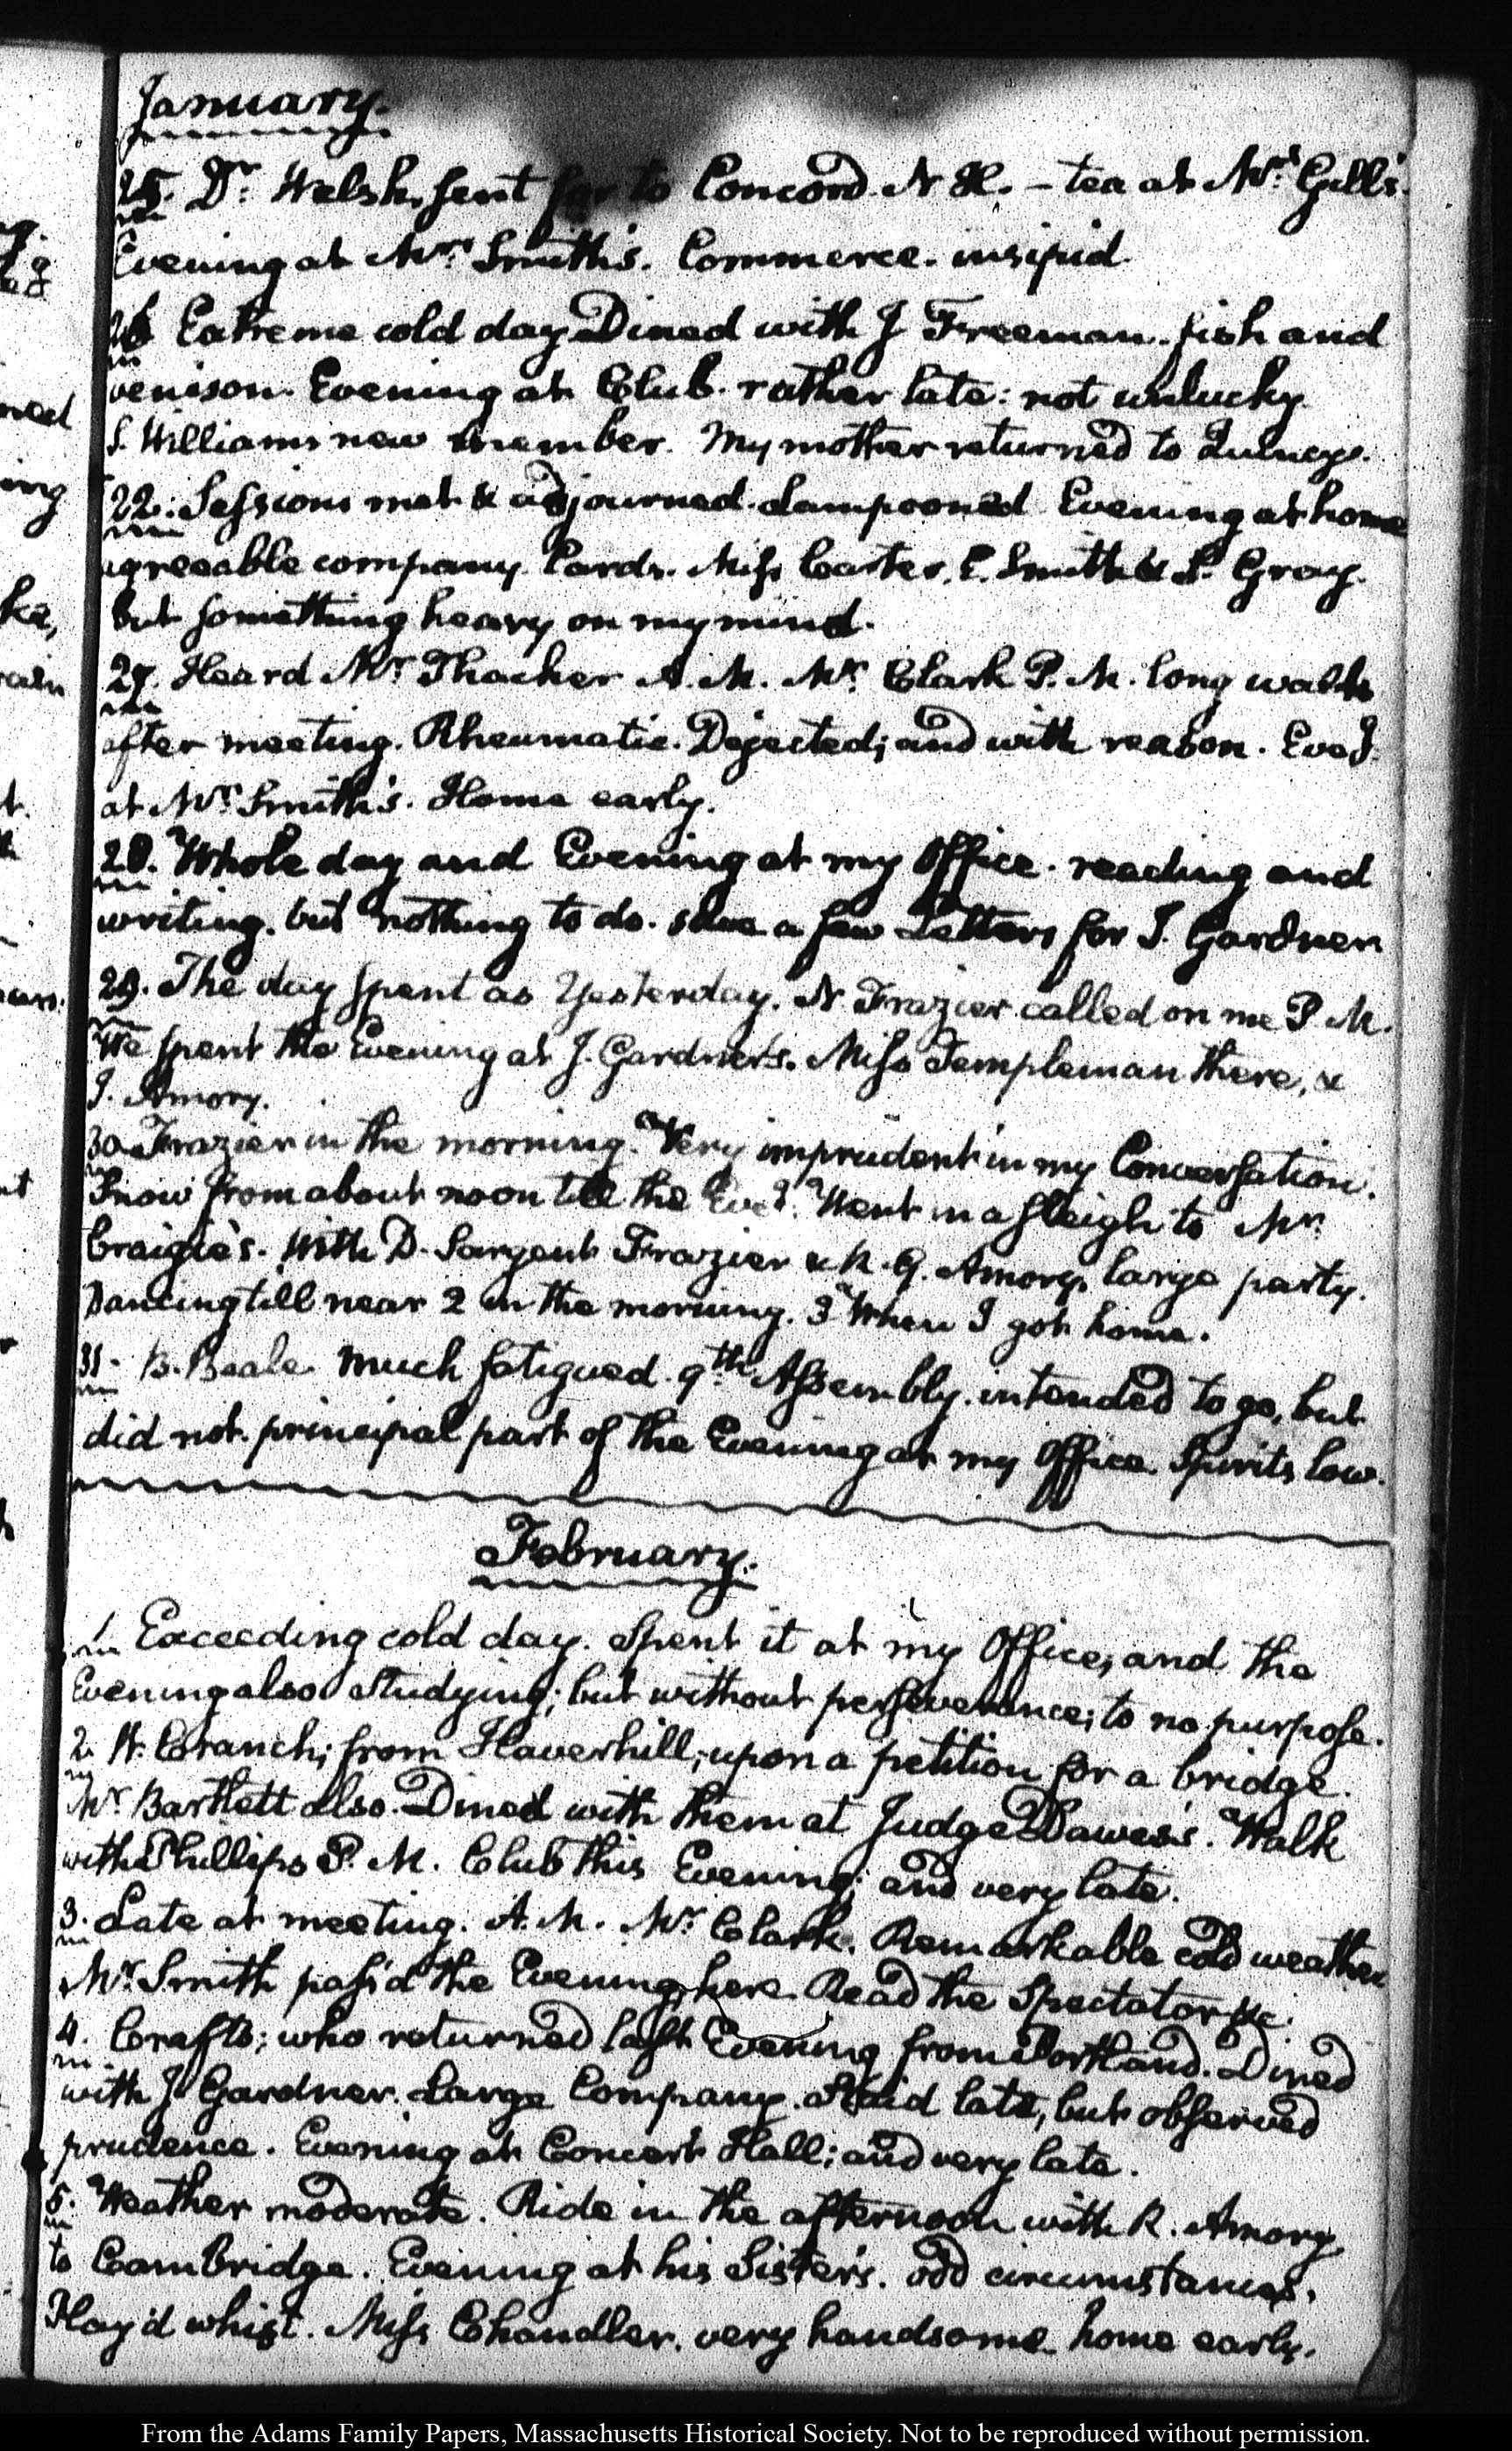 January.
25. Dr. Welsh, sent for to Concord. N H. – tea at Mrs. Gill's.
Evening at Mrs. Smith's. Commerce. insipid.
26 Extreme cold day Dined with J Freeman. fish and
venison. Evening at Club. rather late: not unlucky.
S. Williams new member. My mother returned to Quincy.
22. Sessions met & adjourned. lampooned Evening at home
agreeable company. Cards. Miss Carter, E. Smith & S. Gray.
but something heavy on my mind.
27. Heard Mr. Thacher A. M. Mr. Clark P. M. long walk
after meeting. Rheumatic. Dejected; and with reason. Eveg.
at Mrs. Smith's. Home early.
28. Whole day and Evening at my Office. reading and
writing. but nothing to do. save a few Letters for J. Gardner
29. The day spent as Yesterday. N Frazier called on me P. M.
We spent the Evening at J. Gardner's. Miss Templeman there, &
J. Amory.
30. Frazier in the morning. Very imprudent in my Conversation.
Snow from about noon till the Eveg. Went in a sleigh to Mr.
Craigie's. With D. Sargent Frazier & R. G. Amory, large party.
Dancing till near 2 in the morning. 3 When I got home.
31. B. Beale. Much fatigued. 9th. Assembly. intended to go, but
did not. principal part of the Evening at my Office. Spirits low.
February.
1. Exceeding cold day. Spent it at my Office, and the
Evening also Studying; but without perseverance; to no purpose.
2. W. Cranch; from Haverhill; upon a petition for a bridge.
Mr. Bartlett also. Dined with them at Judge Dawes's. Walk
with Phillips P. M. Club this Evening; and very late.
3. Late at meeting. A. M. Mr. Clark. Remarkable cold weather
Mr. Smith pass'd the Evening here. Read the Spectator &c.
4. Crafts; who returned last Evening from Portland. Dined
with J. Gardner. Large Company. Staid late, but observed
prudence. Evening at Concert Hall; and very late.
5. Weather moderate. Ride in the afternoon with R. Amory,
to Cambridge. Evening at his Sister's. odd circumstances.
Play'd whist. Miss Chandler. very handsome. home early.
From the Adams Family Papers, Massachusetts Historical Society. Not to be reproduced without permission.